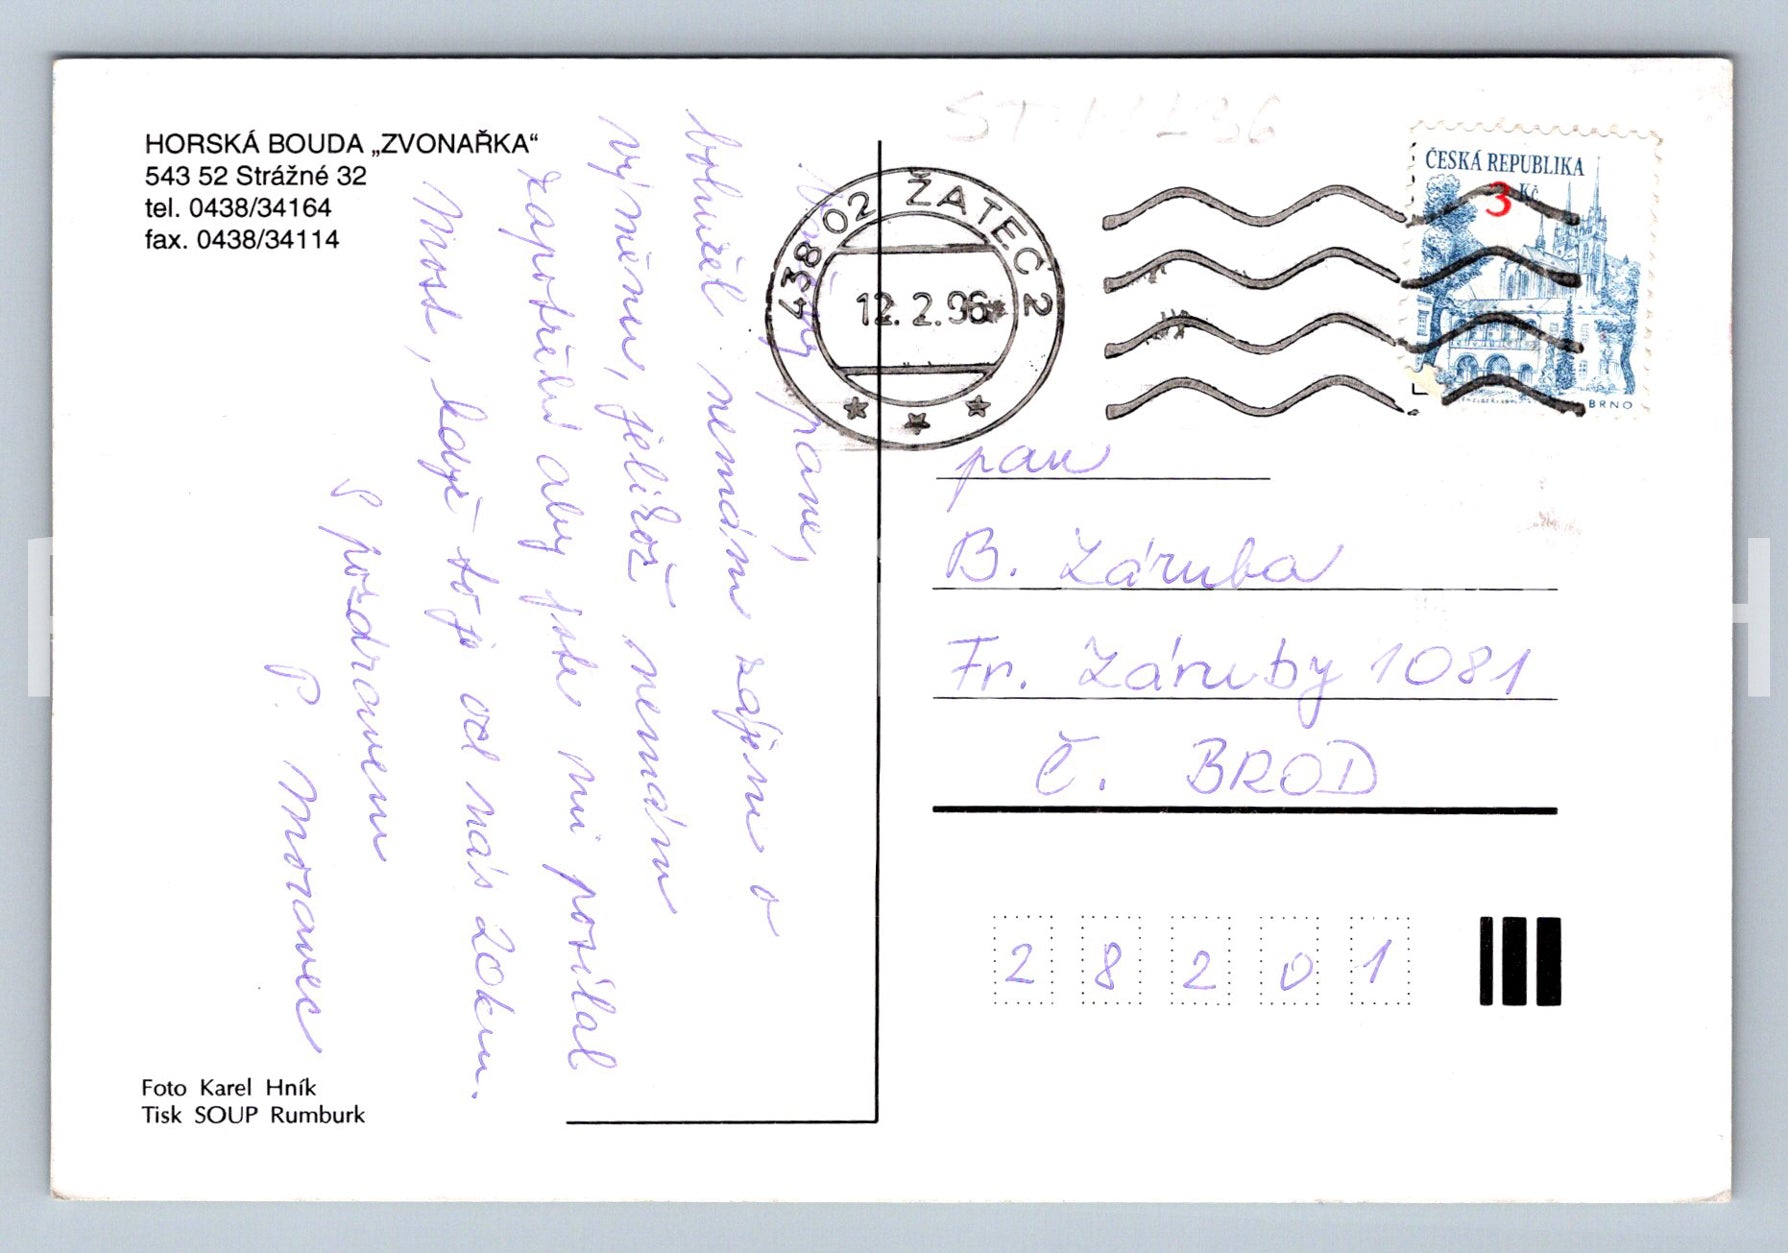 HORSKÁ BOUDA „ZVONAŘKA“
543 52 Strážné 32
tel. 0438/34164
fax. 0438/34114
pane,
bohužel nemám zájmu o
výměnu, jelikož nemám
zapotřebí aby jste mi posílal
Most, když to je od nás 20km.
S pozdravem
P. Moravec
Foto Karel Hník
Tisk SOUP Rumburk
438 02 ŽATEC 2
12. 2. 96
ČESKÁ REPUBLIKA
3 Kč
BRNO
pan
B. Záruba
Fr. Záruby 1081
Č. BROD
28201